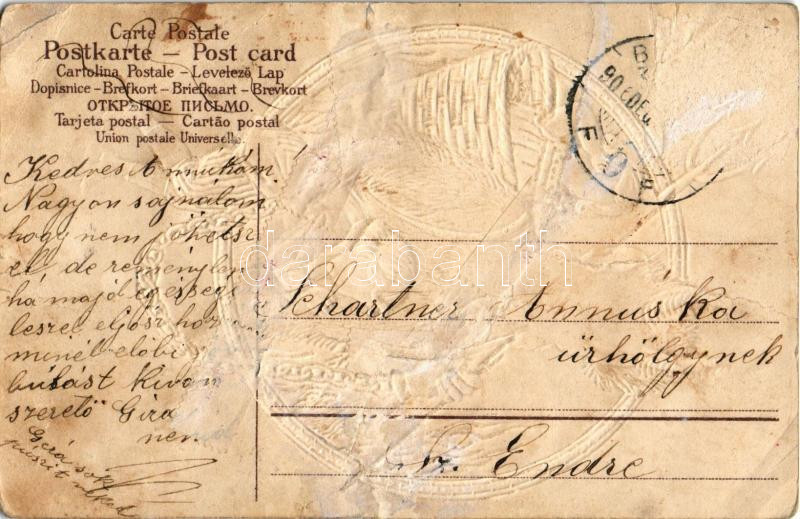 Carte Postale
Postkarte — Post card
Cartolina Postale – Levelező Lap
Dopisnice – Brefkort – Briefkaart – Brevkort
ОТКРЫТОЕ ПИСЬМО.
Tarjeta postal — Cartão postal
Union postale Universelle.
Kedves Annuskám
Nagyon sajnálom
hogy nem jöhetsz
el, de
há majd
leszel eljösz
minél előbi
kívan
szerető Giza
nen
Schartner Annuska
úrhölgynek
Sz. Endre
darabanth